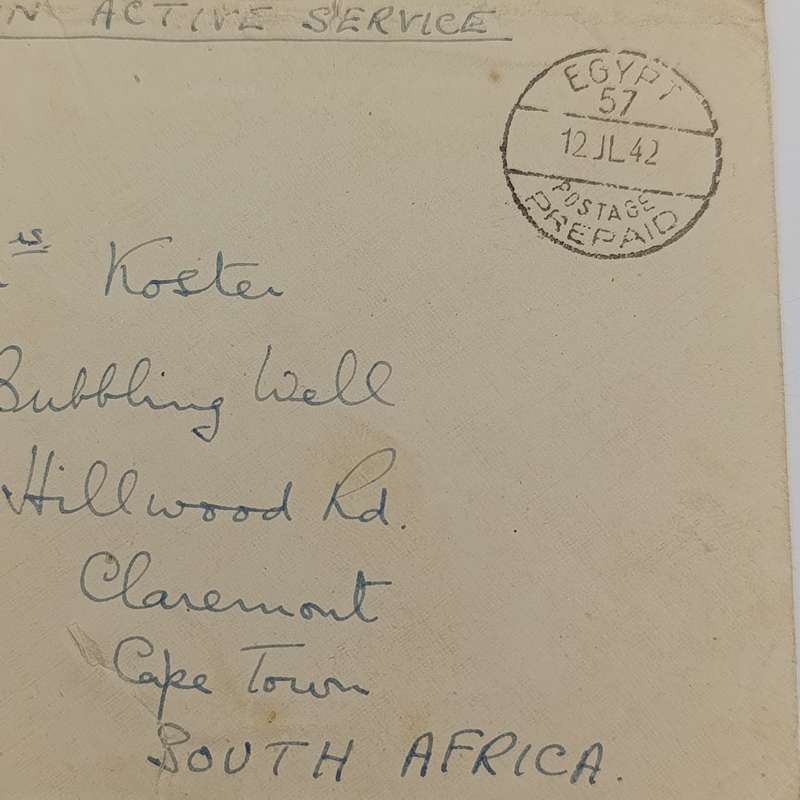 ON ACTIVE SERVICE
EGYPT
57
12 JL 42
POSTAGE
PREPAID
rs. Koster
Bubbling Well
Hillwood Rd.
Claremont
Cape Town
SOUTH AFRICA.